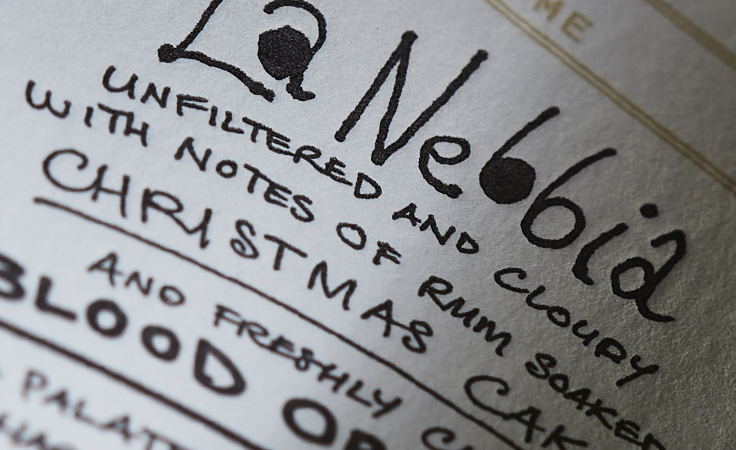 ME
La Nebbia
UNFILTERED AND CLOUDY
WITH NOTES OF RUM SOAKED
CHRISTMAS CAK
AND FRESHLY
BLOOD OR
PALAT